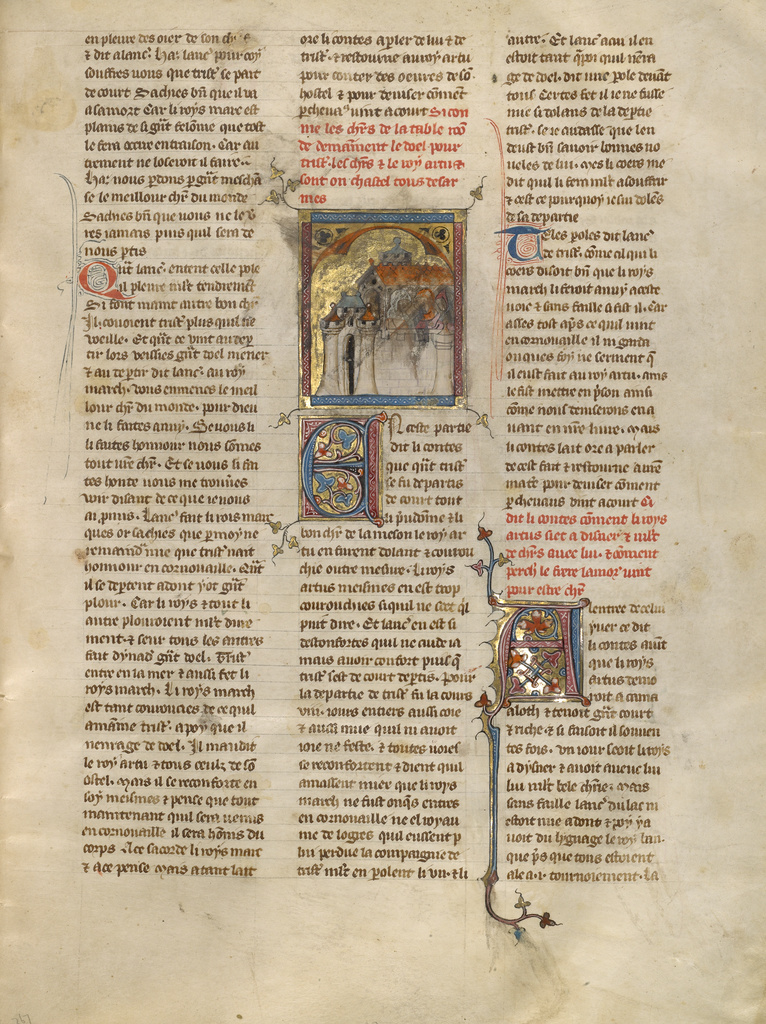 en pleure des oier de son chr
& dit a lanc. Ha. lanc. pour coy
souffres vous que trist. se part
de court Sachies bn que il va
a sa mort Car li roys marc est
plains de si grt felonie que tost
le fera ocirre en traison. Car au
trement ne loseroit il faire.
Ha. nous perdons par grt mescha
se le meillour chr du monde
Sachies bn que vous ne le v
res iamais puis quil sera de
nous ptis
Qnt lanc. entent celle pole
il pleure mlt tendrement
Si font maint autre bon chr
Il couoient trist. plus quil ne
weille. Et qnt ce vint au dep
tir lors veissies grt doel mener
& au deptir dit lanc. au roy
march. vous enmenes le meil
lour chr du monde. pour dieu
ne li faites anuy. Se vous li
li faites honnour nous somes
tout vre chr. Et se vous li fai
tes honte vous nous trouues
voir disant de ce que ie vous
ai pmis. Lanc. fait li rois marc
ques or sachies que p moy ne
remaindra mie que trist. nait
honnour en cornouaille. Qnt
il se deptent adont y ot grt
plour. Car li roys & tout li
autre plouroient mlt dure
ment. & seur tous les autres
fait dynad. grt doel. Trist.
entre en la mer & aussi fet li
roys march. Li roys march
est tant couroucies de ce quil
amaine trist. a poy que il
nenrage de doel. Il maudit
le roy artu & tous ceulz de so
ostel. Mais il se reconforte en
soy meismes & pense que tout
maintenant quil sera venus
en cornouaille il sera honis du
corps A ce sacorde li roys marc
& a ce pense Mais a tant lait
ore li contes a pler de lui & de
trist. & retourne au roy artu
pour conter des oeures de so
hostel & pour deuiser coment
pcheual vint a court Si com
me les chrs de la table roo
de demainnent le doel pour
trist. les chrs & le roy artu &
sont on chastel tous desar
mes
En ceste partie
dit li contes
que qnt trist.
se fu departis
de court tout
li preudome & li
bon chr de la meson le roy ar
tu en furent dolant & courou
chie outre mesure. Li roys
artus meismes en est trop
courouchies si quil ne set ql
puit dire. Et lanc. en est si
desconfortes quil ne cuide ia
mais auoir confort puis q
trist. sest de court deptis. Pour
la departie de trist. fu la cours
viii. iours entiers aussi coie
& aussi mue quil ni auoit
ioie ne feste. & toutes uoies
se reconfortent & dient quil
amassent mieus que li roys
march ne fust onqs entres
en cornouaille ne el royau
me de logres quil eussent p
lui perdue la compaignie de
trist. mlt en polent li un. & li
autre. Et lanc. aussi il en
estoit tant qpoi quil nenra
ge de doel. dit une pole deuant
tous Certes fet il ie ne fusse
mie si dolans de la deptie
trist. se ie cuidasse que len
deust bn sauoir bonnes no
ueles de lui. Mes li coers me
dit quil li fera mlt a souffrir
& cest ce pourquoy ie sui doles
de sa departie
Teles poles dit lanc.
de trist. come cil qui li
coers disoit bn que li roys
march li feroit anuy a ceste
uoie & sans faille si fist il. Car
asses tost aps ce quil vint
en cornouaille il ni garda
onques foy ne serment q
il eust fait au roy artu. ains
le fist mettre en pson ainsi
come nous deuiserons en a
uant en nre liure. Mais
li contes lait ore a parler
de cest fait & retourne au re
matere pour deuiser coment
pcheuaus vint a court Ci
dit li contes coment li roys
artus siet a disner & mlt
de chrs auec lui. & coment
perch. le frere lamor. vint
pour estre chr
A lentree de celui
yuer ce dit
li contes auint
que li roys
artus demo
roit a cama
aloth & tenoit grt court
& riche. & si faisoit il souuen
tes fois. un iour seoit li roys
a dysner & auoit auenc lui
lui mlt bele chrie. Mais
sans faille lanc. du lac ni
estoit mie adont & poy y a
uoit du lygnage le roy ban.
que ps que tous estoient
ale a .i. tournoiement. La